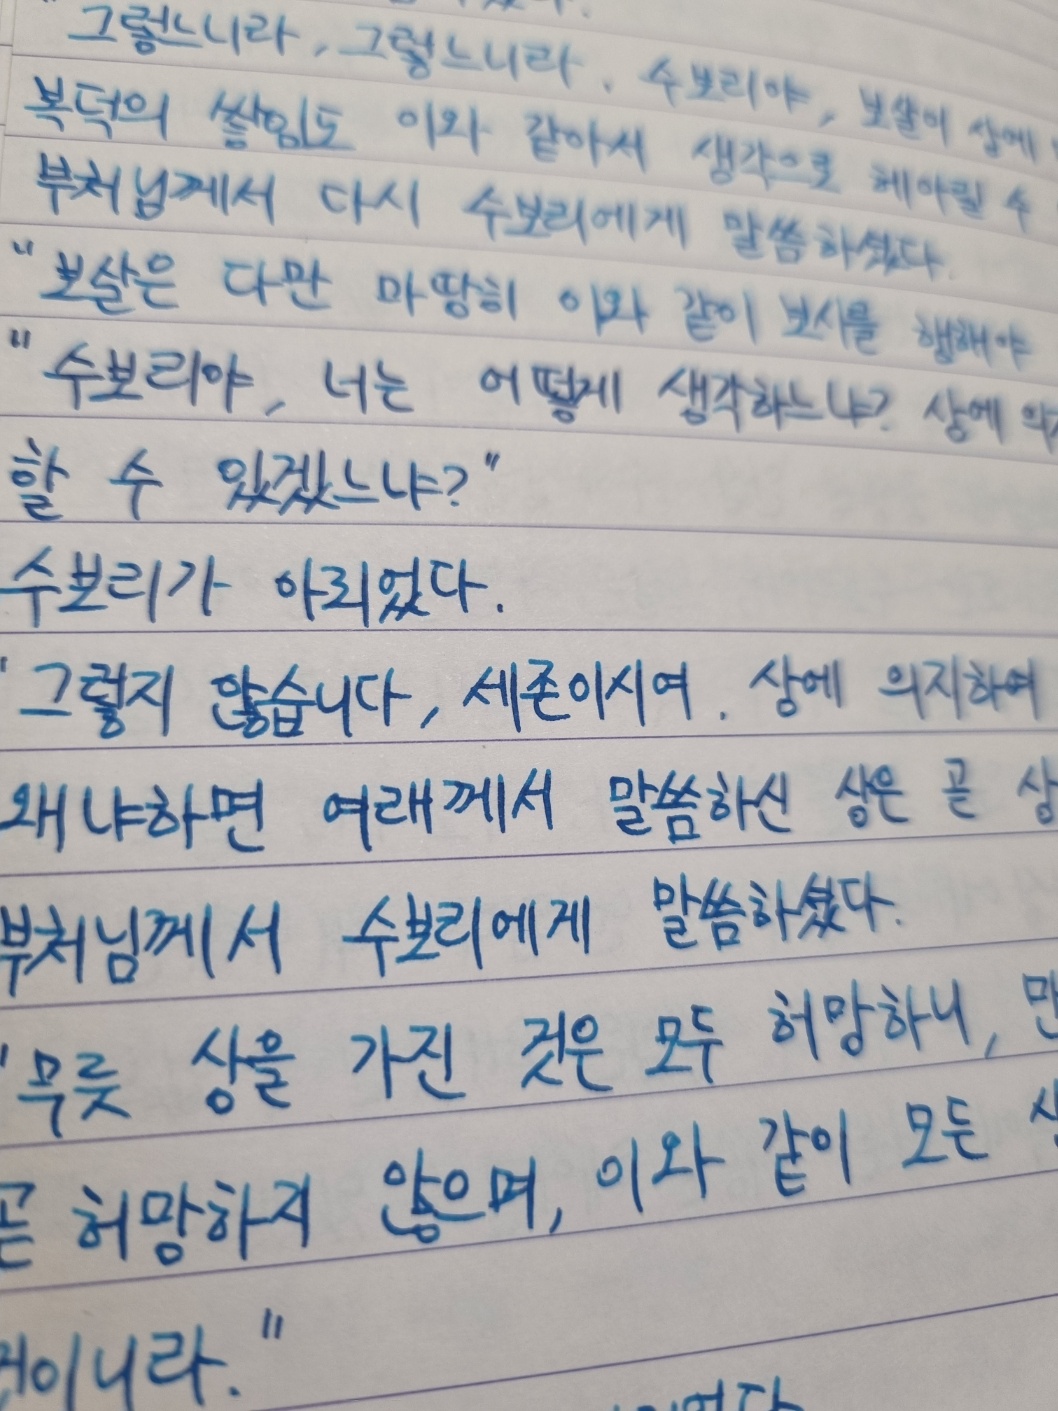 "그렇느니라, 그렇느니라. 수보리야, 보살이 상에
복덕의 쌓임도 이와 같아서 생각으로 헤아릴 수
부처님께서 다시 수보리에게 말씀하셨다.
"보살은 다만 마땅히 이와 같이 보시를 행해야
"수보리야, 너는 어떻게 생각하느냐? 상에
할 수 있겠느냐?"
수보리가 아뢰었다.
"그렇지 않습니다, 세존이시여. 상에 의지하여
왜냐하면 여래께서 말씀하신 상은 곧 상
부처님께서 수보리에게 말씀하셨다.
"무릇 상을 가진 것은 모두 허망하니, 만
곧 허망하지 않으며, 이와 같이 모든
것이니라."